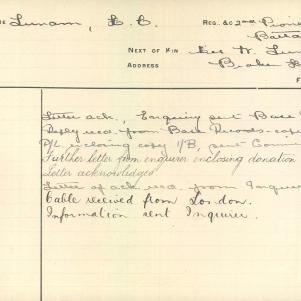 Lunam, L. C. REG. &C 2nd Pioneer
Batta
NEXT OF KIN W. Lun
ADDRESS Broken
F
Letter ack., Enquiry sent Base
Reply recd. from Base Records - copi
P/L inclosing copy 1/B, sent Comm
Further letter from enquirer enclosing donation
Letter acknowledged
Letter of ack. recd. from Enquir
Cable received from London.
Information sent Inquirer.